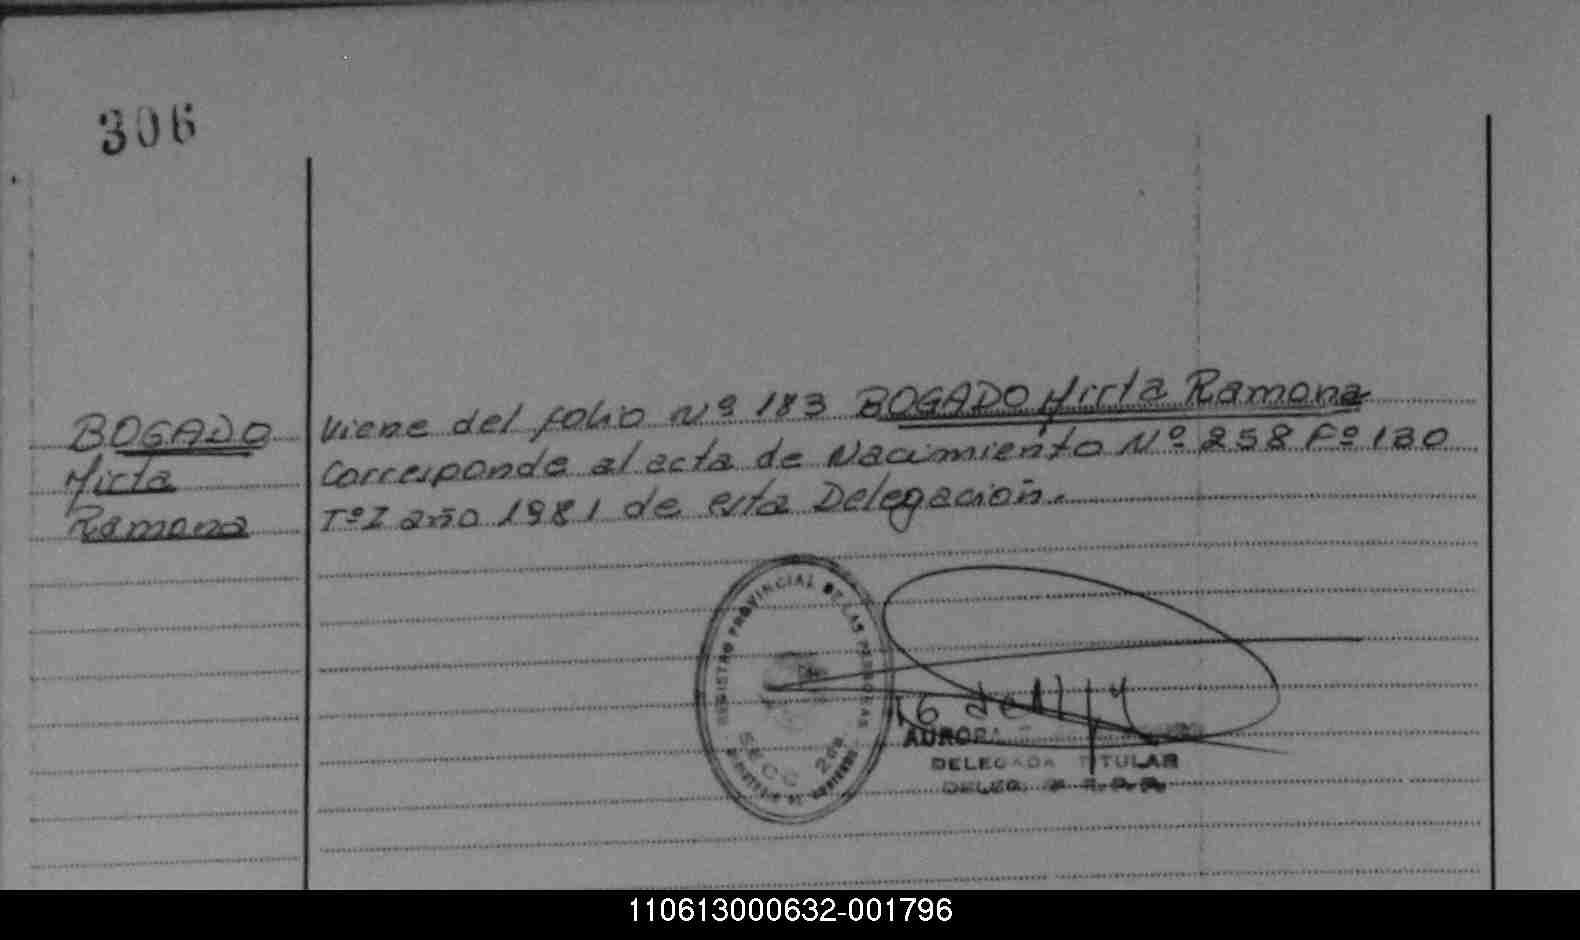 306
BOGADO
Mirta
Ramona
Viene del folio Nº 183 BOGADO Mirta Ramona
Corresponde al acta de Nacimiento Nº 258 Fº 130
TºI año 1981 de esta Delegación.
REGISTRO PROVINCIAL DE LAS PERSONAS
SECC 2da
AURORA
DELEGADA TITULAR
DELEG. R.P.P.
110613000632-001796